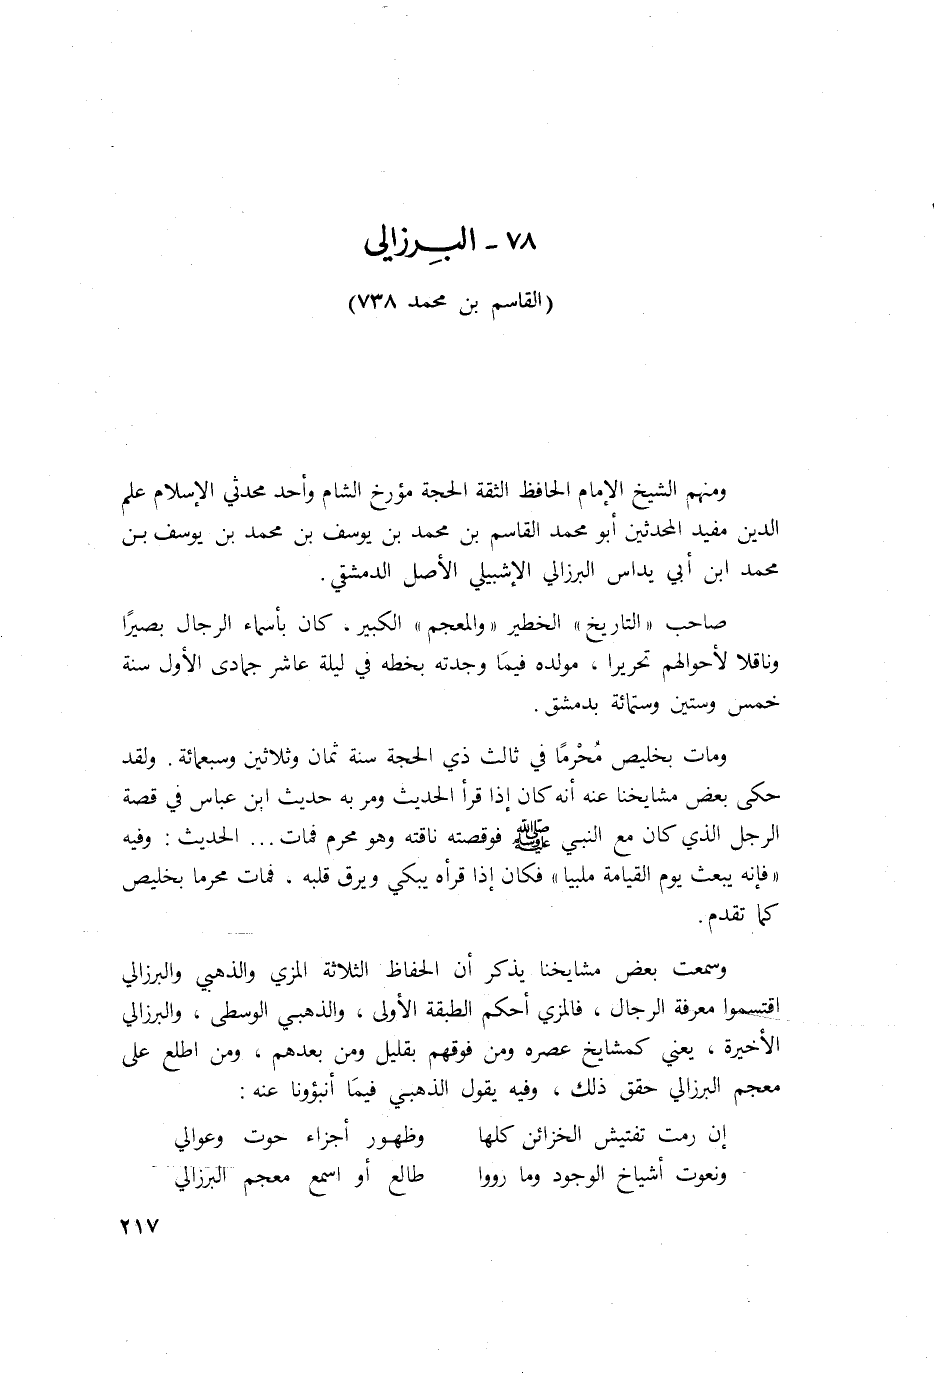 ٧٨ - البرزالي
(القاسم بن محمد ٧٣٨)
ومنهم الشيخ الإمام الحافظ الثقة الحجة مؤرخ الشام وأحد محدثي الإسلام علم
الدين مفيد المحدثين أبو محمد القاسم بن محمد بن يوسف بن محمد بن يوسف بن
محمد ابن أبي يداس البرزالي الإشبيلي الأصل الدمشقي .
صاحب «التاريخ» الخطير «والمعجم» الكبير . كان بأسماء الرجال بصيرًا
وناقلا لأحوالهم تحريرا ، مولده فيما وجدته بخطه في ليلة عاشر جمادى الأول سنة
خمس وستين وستمائة بدمشق .
ومات بخليص مُحْرمًا في ثالث ذي الحجة سنة ثمان وثلاثين وسبعمائة . ولقد
حكى بعض مشايخنا عنه أنه كان إذا قرأ الحديث ومر به حديث ابن عباس في قصة
الرجل الذي كان مع النبي ﷺ فوقصته ناقته وهو محرم فمات ... الحديث : وفيه
«فإنه يبعث يوم القيامة ملبيا» فكان إذا قرأه يبكي ويرق قلبه . فمات محرما بخليص
كما تقدم .
وسمعت بعض مشايخنا يذكر أن الحفاظ الثلاثة المزي والذهبي والبرزالي
اقتسموا معرفة الرجال ، فالمزي أحكم الطبقة الأولى ، والذهبي الوسطى ، والبرزالي
الأخيرة ، يعني كمشايخ عصره ومن فوقهم بقليل ومن بعدهم ، ومن اطلع على
معجم البرزالي حقق ذلك ، وفيه يقول الذهبي فيما أنبؤونا عنه :
إن رمت تفتيش الخزائن كلها وظهور أجزاء حوت وعوالي
ونعوت أشياخ الوجود وما رووا طالع أو اسمع معجم البرزالي
٢١٧